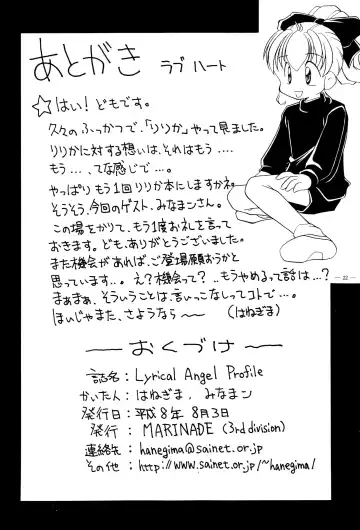 あとがき ラブ ハート
☆はい！どもです。
久々のふっかつで、「りりか」やって見ました。
りりかに対する想いは、それはもう‥‥
もう‥‥、てな感じで‥。
やっぱりもう1回りりか本にしますかネ。
そうそう、今回のゲスト、みなまんさん。
この場をかりて、もう1度お礼を言って
おきます。ども、ありがとうございました。
また機会があれば、ご登場願おうかと
思っています‥。え？機会って？‥もうやめるって話は‥？
まぁまぁ、そういうことは、言いっこなしってコトで‥。
ほいじゃまた、さようなら〜 (はねぎま)
— 22 —
〜おくづけ〜
誌名：Lyrical Angel Profile
かいた人：はねぎま, みなまん
発行日：平成8年 8月3日
発行：MARINADE (3rd division)
連絡先：hanegima@sainet.or.jp
その他：http://www.sainet.or.jp/~hanegima/